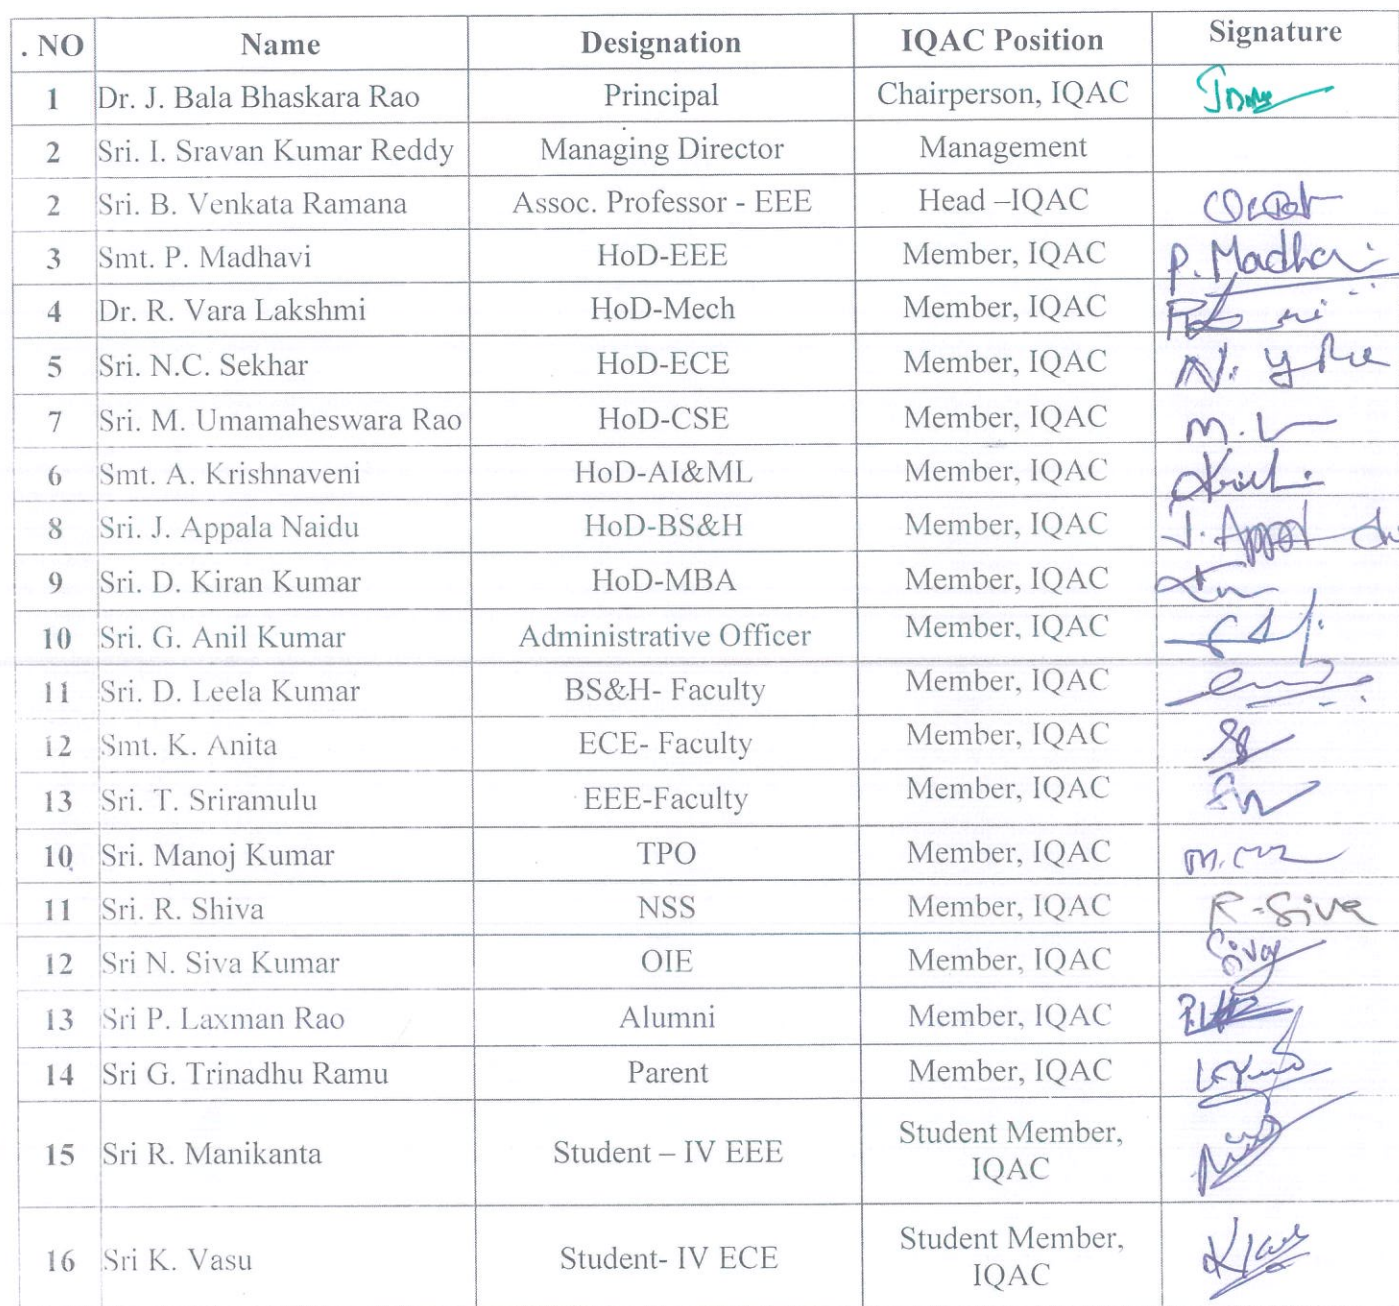 . NO Name Designation IQAC Position Signature
1 Dr. J. Bala Bhaskara Rao Principal Chairperson, IQAC
2 Sri. I. Sravan Kumar Reddy Managing Director Management
2 Sri. B. Venkata Ramana Assoc. Professor - EEE Head –IQAC
3 Smt. P. Madhavi HoD-EEE Member, IQAC P. Madhavi
4 Dr. R. Vara Lakshmi HoD-Mech Member, IQAC
5 Sri. N.C. Sekhar HoD-ECE Member, IQAC
7 Sri. M. Umamaheswara Rao HoD-CSE Member, IQAC
6 Smt. A. Krishnaveni HoD-AI&ML Member, IQAC
8 Sri. J. Appala Naidu HoD-BS&H Member, IQAC
9 Sri. D. Kiran Kumar HoD-MBA Member, IQAC
10 Sri. G. Anil Kumar Administrative Officer Member, IQAC
11 Sri. D. Leela Kumar BS&H- Faculty Member, IQAC
12 Smt. K. Anita ECE- Faculty Member, IQAC
13 Sri. T. Sriramulu EEE-Faculty Member, IQAC
10 Sri. Manoj Kumar TPO Member, IQAC
11 Sri. R. Shiva NSS Member, IQAC R-Siva
12 Sri N. Siva Kumar OIE Member, IQAC Siva
13 Sri P. Laxman Rao Alumni Member, IQAC
14 Sri G. Trinadhu Ramu Parent Member, IQAC
15 Sri R. Manikanta Student – IV EEE Student Member,
IQAC
16 Sri K. Vasu Student- IV ECE Student Member,
IQAC